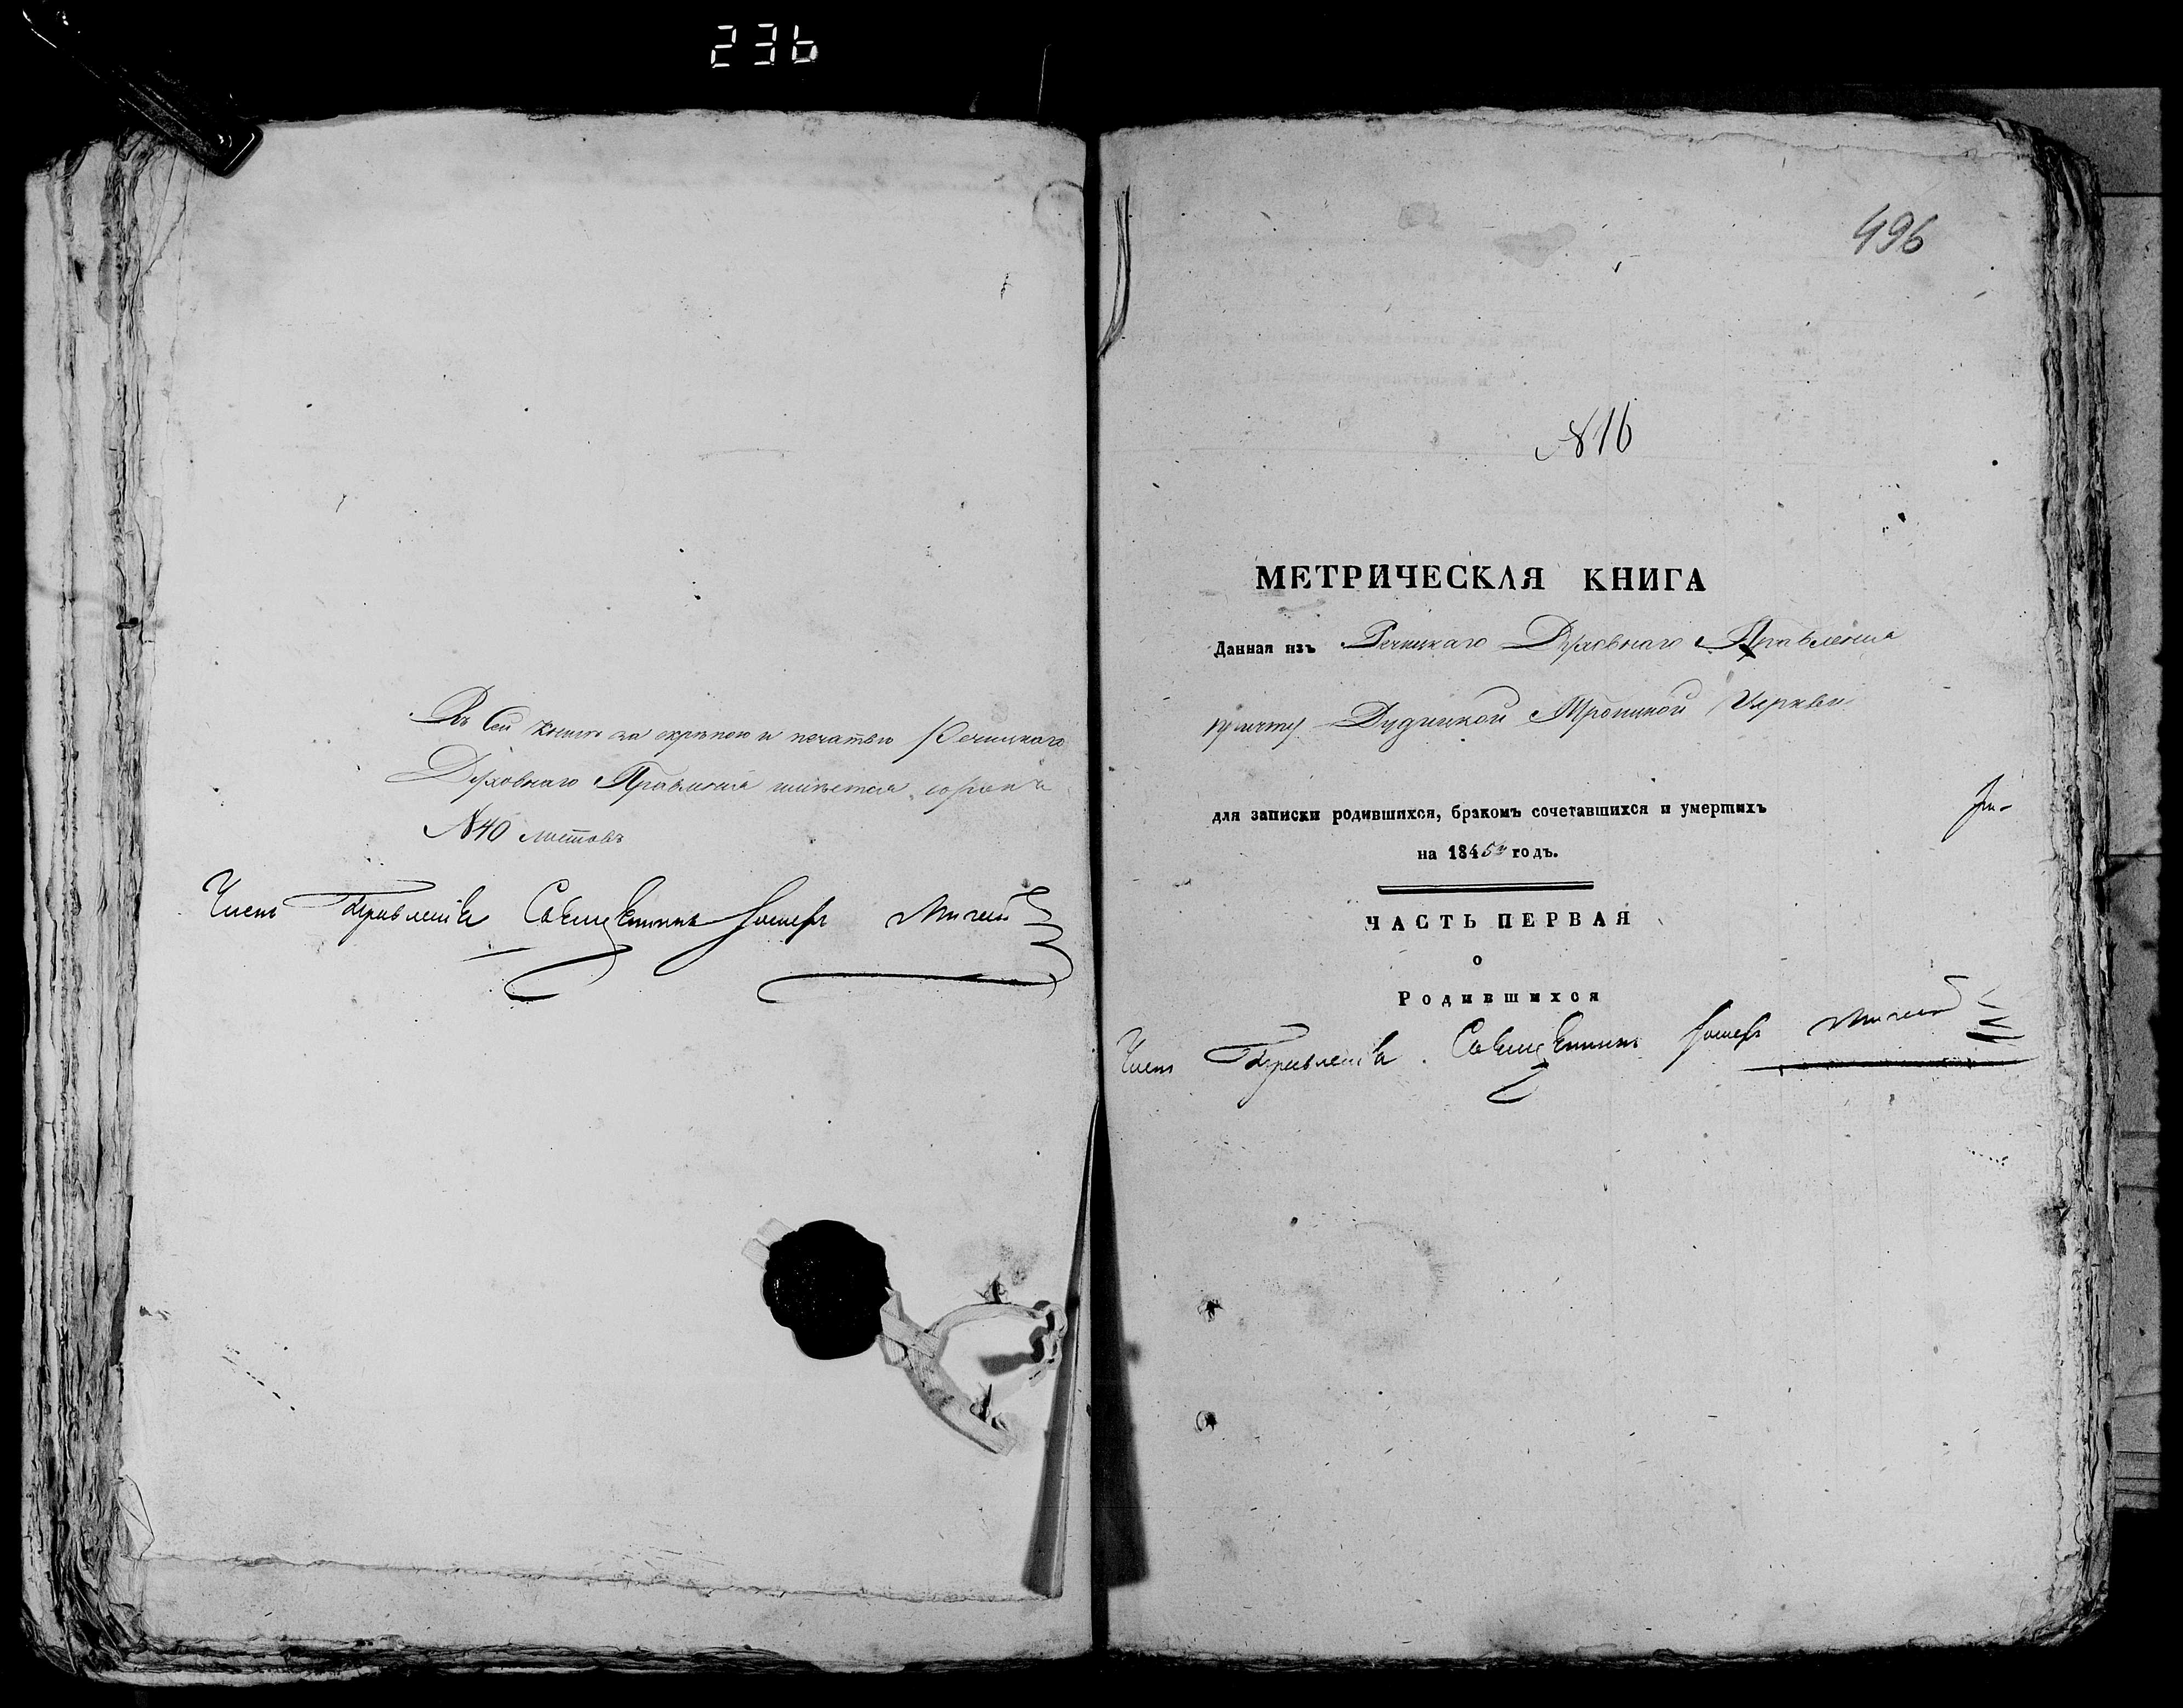 236
Въ Сей Книгѣ за скрѣпою и печатью Речицкаго
Духовнаго Правленія имѣется сорокъ
№40 листовъ
Членъ Правленія Священникъ
496
№16
МЕТРИЧЕСКАЯ КНИГА
Данная изъ Речицкаго Духовнаго Правленія
причту Дудицкой Троицкой Церкви
для записки родившихся, бракомъ сочетавшихся и умершихъ
на 1845й годъ.
ЧАСТЬ ПЕРВАЯ
о
Родившихся
Членъ Правленія Священникъ